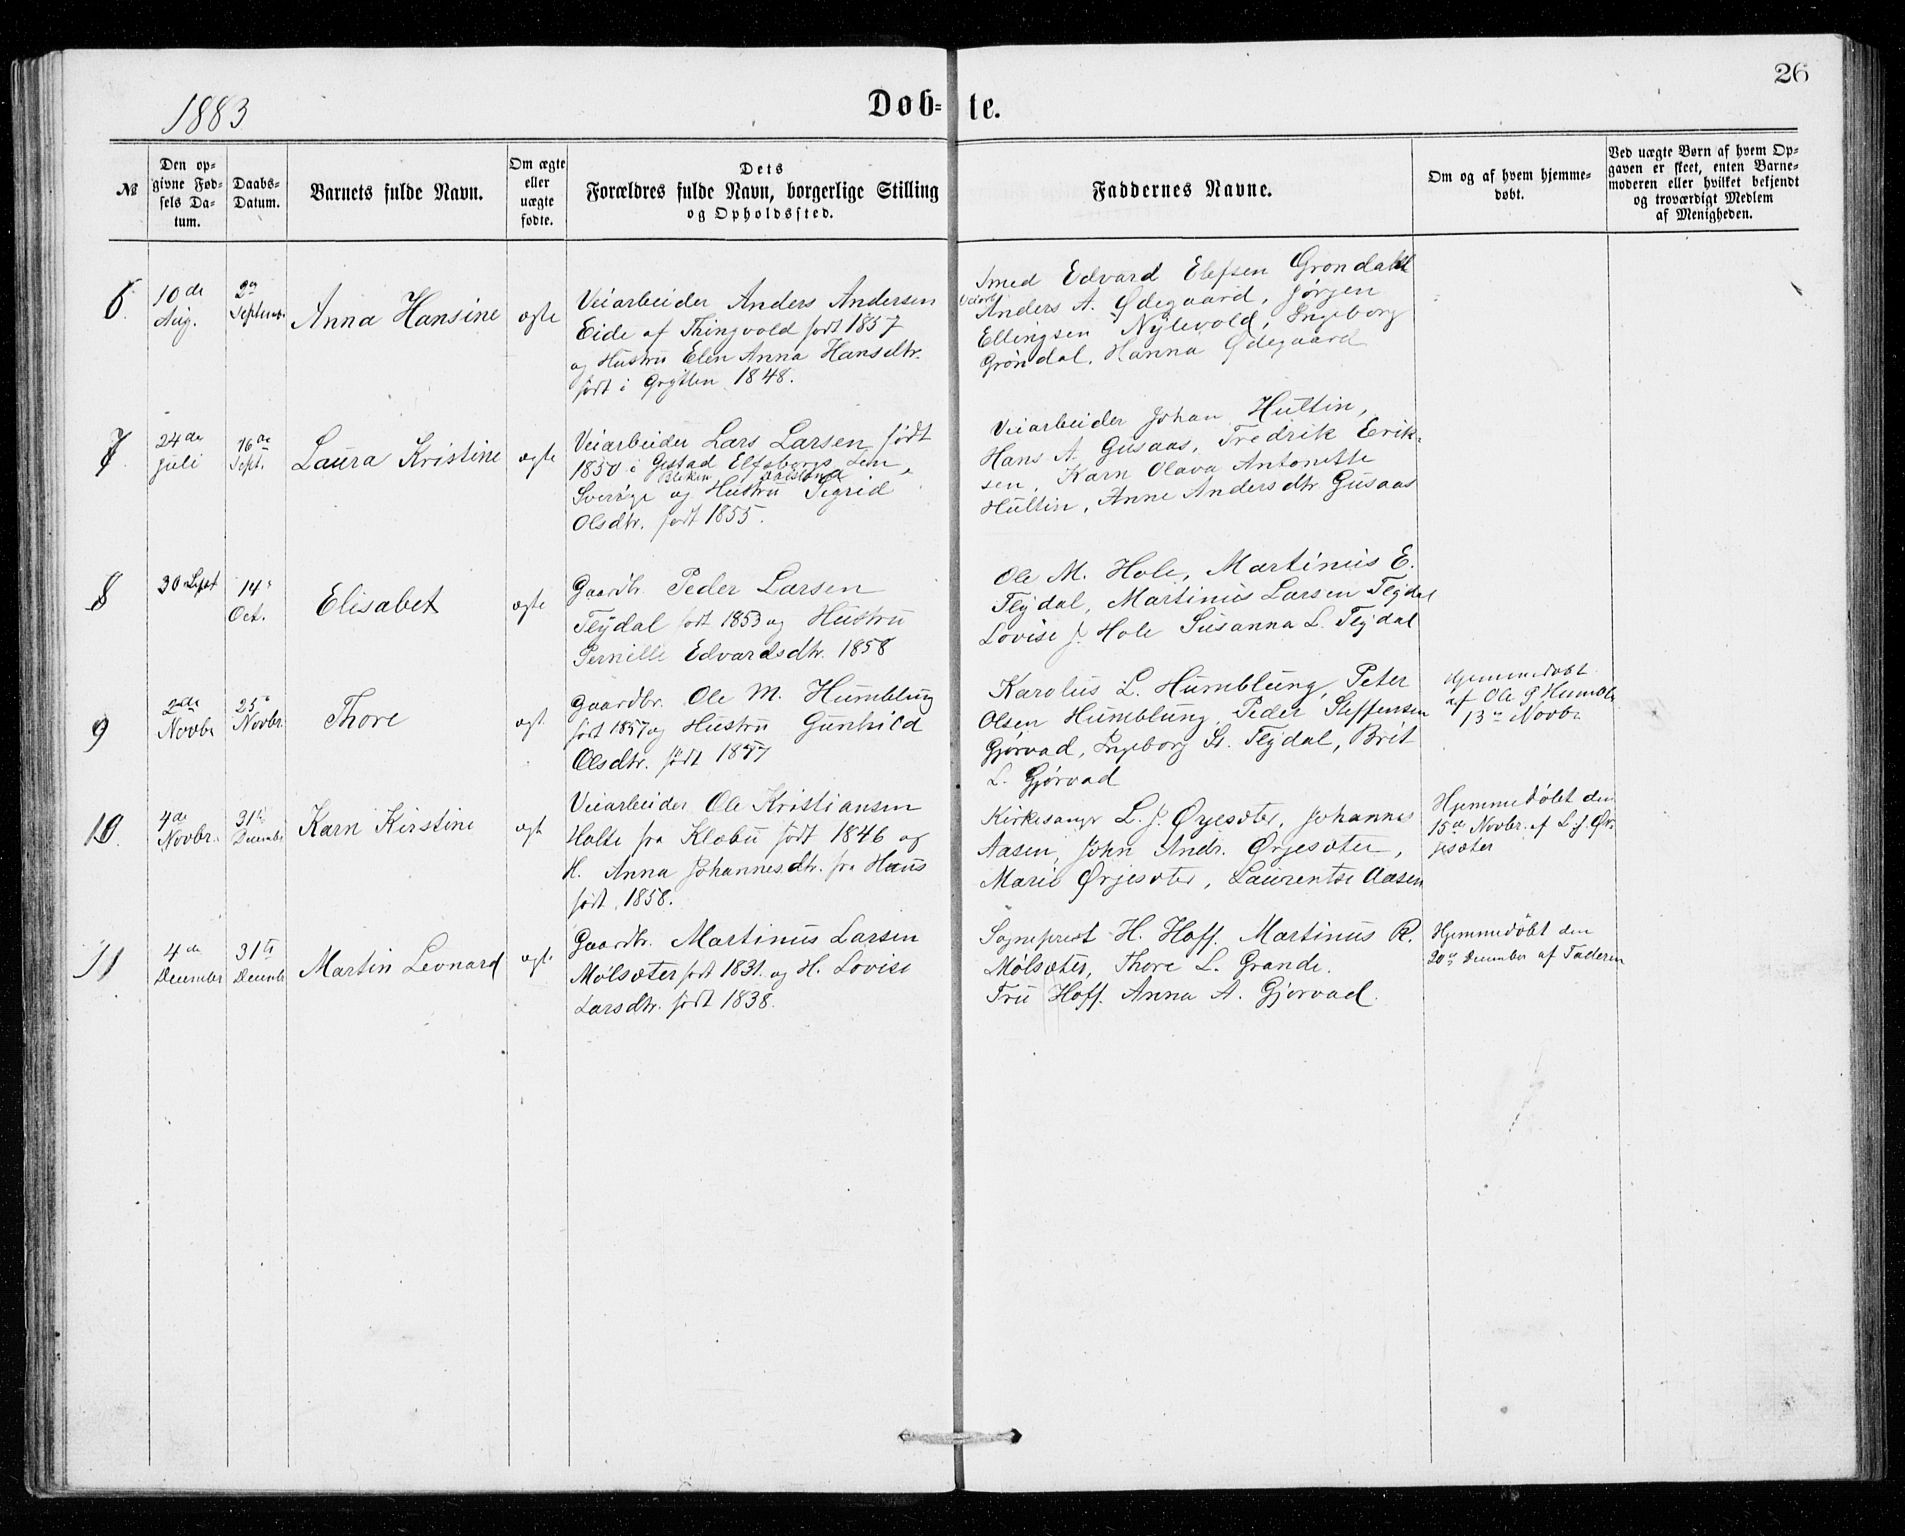 26
1883
Døb- te.
№
Den op-
givne Fød-
sels Da-
tum.
Daabs-
Datum.
Barnets fulde Navn.
Om ægte
eller
uægte
fødte.
Dets
Forældres fulde Navn, borgerlige Stilling
og Opholdssted.
Faddernes Navne.
Om og af hvem hjemme-
døbt.
Ved uægte Børn af hvem Op-
gaven er skeet, enten Barne-
moderen eller hvilket bekjendt
og troværdigt Medlem
af Menigheden.
6.
10de
Aug.
2den
Septemb.
Anna Hansine
ægte
Veiarbeider Anders Andersen
Eide af Thingvold født 1857
og Hustru Elen Anna Hansdtr.
født i Grytten 1848.
Smed Edvard Elefsen Grøndahl
Anders A. Ødegaard, Jørgen
Ellingsen Nylevold, Ingeborg
Grøndal, Hanna Ødegaard
7
24de
Juli
16de
Sept.
Laura Kristine
ægte
Veiarbeider Lars Larsen født
1850 i Gestad Elfsborgs Len,
Sverige og Hustru Sigrid
Olsdtr. født 1855.
Veiarbeider Johan Hultin,
Hans A. Gusaas, Fredrik Erik-
sen, Karn Olava Antonette
Hultin, Anne Andersdtr Gusaas
8
30 Sept
14de
Oct.
Elisabet
ægte
Gaardbr. Peder Larsen
Flydal født 1853 og Hustru
Pernille Edvardsdtr. 1858
Ole M. Hole, Martinus E.
Flydal, Martinus Larsen Flydal
Lovise J. Hole Susanna L. Flydal
9
2den
Novbr
25de
Novbr.
Thore
ægt.
Gaardbr. Ole M. Humblung
født 1857 og Hustru Gunhild
Olsdtr. født 1857
Karolus L. Humblung, Peter
Olsen Humblung, Peder Steffensen
Gjørvad, Ingeborg St. Flydal, Brit
L. Gjørvad
Hjemmedøbt
af Ole
13de Novbr
10
4de
Novbr.
31te
Decembr
Karn Kirstine
ægt
Veiarbeider Ole Kristiansen
Holte fra Klæbu født 1846 og
H. Anna Johannesdtr. fra Haus
født 1858.
Kirkesanger L. J. Ørjesæter, Johannes
Aasen, John Andr. Ørjesæter,
Marie Ørjesæter, Laurentse Aasen
Hjemmedøbt den
15de Novbr. af L. J. Ør-
jesæter
11
4de
December
31te
Decembr
Martin Leonard
ægte
Gaardbr. Martinus Larsen
Mølsæter født 1831 og H. Lovise
Larsdtr. født 1838.
Sogneprest H. Hoff. Martinus R.
Mølsæter, Thore L. Grande.
Fru Hoff. Anna A. Gjørvad.
Hjemmedøbt den
20de December af Faderen